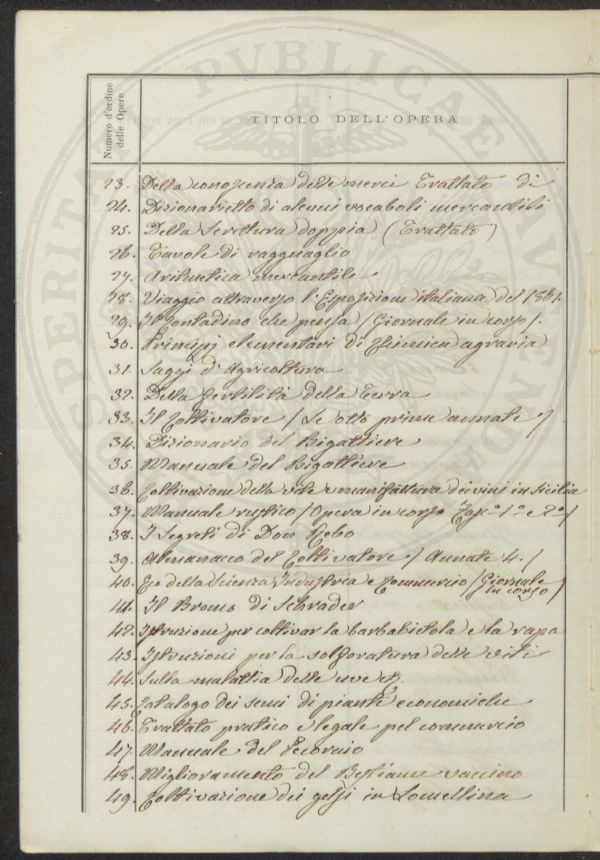 PROSPERITATI PVBLICAE AVGENDAE
Numero d'ordine
delle Opere
TITOLO DELL'OPERA
23. Della conoscenza delle merci Trattato di
24. Dizionarietto di alcuni vocaboli mercantili
25. Della Scrittura doppia (Trattato)
26. Tavole di ragguaglio
27. Aritmetica mercantile
28. Viaggio attraverso l'Esposizione italiana del 1861.
29. Il Contadino che pensa / Giornale in corso /.
30. Principj elementari di Chimica agraria
31. Saggi d'Agricoltura
32. Della fertilità della Terra
33. Il Coltivatore / Le otto prime annate /
34. Dizionario del Bigattiere
35. Manuale del Bigattiere
36. Coltivazione della vite e manifattura dei vini in Sicilia
37. Manuale rustico / Opera in corso Fasc.° 1° e 2° /
38. I Segreti di Don Rebo
39. Almanacco del Coltivatore / Annate 4. /
40. Eco della Scienza Industria e Commercio / Giornale
in corso /
41. Il Bromo di Schrader
42. Istruzione per coltivar la barbabietola e la rapa
43. Istruzioni per la solforatura delle viti
44. Sulla malattia delle uve
45. Catalogo dei semi di piante economiche
46. Trattato pratico e legale pel commercio
47. Manuale del Pecoraio
48. Miglioramento del Bestiame vaccino
49. Coltivazione dei gelsi in Lomellina